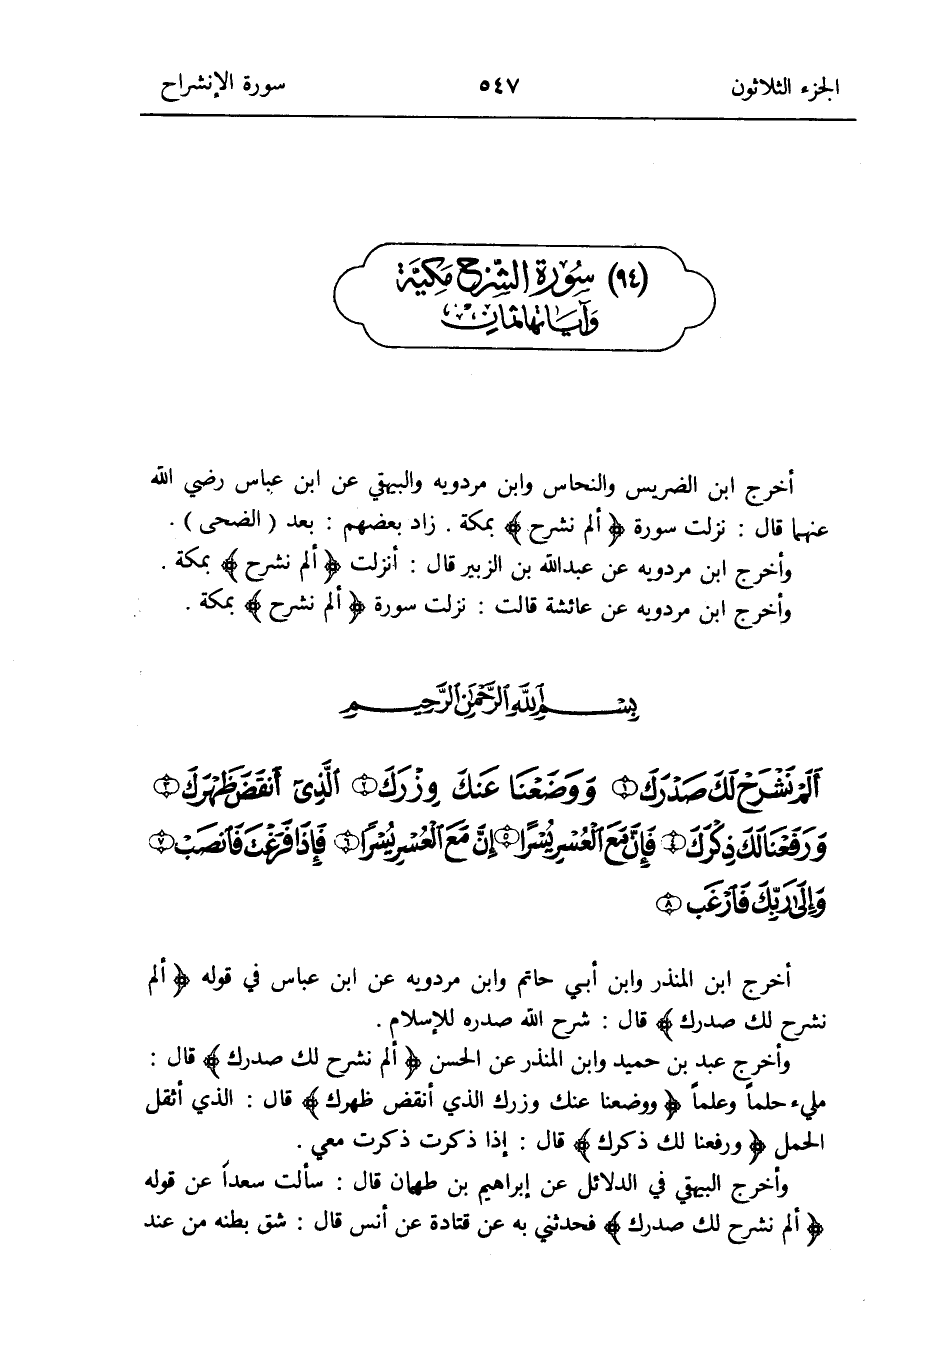 الجزء الثلاثون ٥٤٧ سورة الإنشراح
(٩٤) سُورَة الشَّرْح مَكيَّة
وَآيَاتهَا ثمَانٍ
أخرج ابن الضريس والنحاس وابن مردويه والبيهقي عن ابن عباس رضي الله
عنهما قال : نزلت سورة ﴿ ألم نشرح ﴾ بمكة . زاد بعضهم : بعد ( الضحى ) .
وأخرج ابن مردويه عن عبدالله بن الزبير قال : أنزلت ﴿ ألم نشرح ﴾ بمكة .
وأخرج ابن مردويه عن عائشة قالت : نزلت سورة ﴿ ألم نشرح ﴾ بمكة .
بِسْمِ ٱللَّهِ ٱلرَّحْمَٰنِ ٱلرَّحِيمِ
أَلَمْ نَشْرَحْ لَكَ صَدْرَكَ ١ وَوَضَعْنَا عَنكَ وِزْرَكَ ٢ ٱلَّذِىٓ أَنقَضَ ظَهْرَكَ ٣
وَرَفَعْنَا لَكَ ذِكْرَكَ ٤ فَإِنَّ مَعَ ٱلْعُسْرِ يُسْرًا ٥ إِنَّ مَعَ ٱلْعُسْرِ يُسْرًا ٦ فَإِذَا فَرَغْتَ فَٱنصَبْ ٧
وَإِلَىٰ رَبِّكَ فَٱرْغَب ٨
أخرج ابن المنذر وابن أبي حاتم وابن مردويه عن ابن عباس في قوله ﴿ ألم
نشرح لك صدرك ﴾ قال : شرح الله صدره للإسلام .
وأخرج عبد بن حميد وابن المنذر عن الحسن ﴿ ألم نشرح لك صدرك ﴾ قال :
مليء حلماً وعلماً ﴿ ووضعنا عنك وزرك الذي أنقض ظهرك ﴾ قال : الذي أثقل
الحمل ﴿ ورفعنا لك ذكرك ﴾ قال : إذا ذكرت ذكرت معي .
وأخرج البيهقي في الدلائل عن إبراهيم بن طهمان قال : سألت سعداً عن قوله
﴿ ألم نشرح لك صدرك ﴾ فحدثني به عن قتادة عن أنس قال : شق بطنه من عند